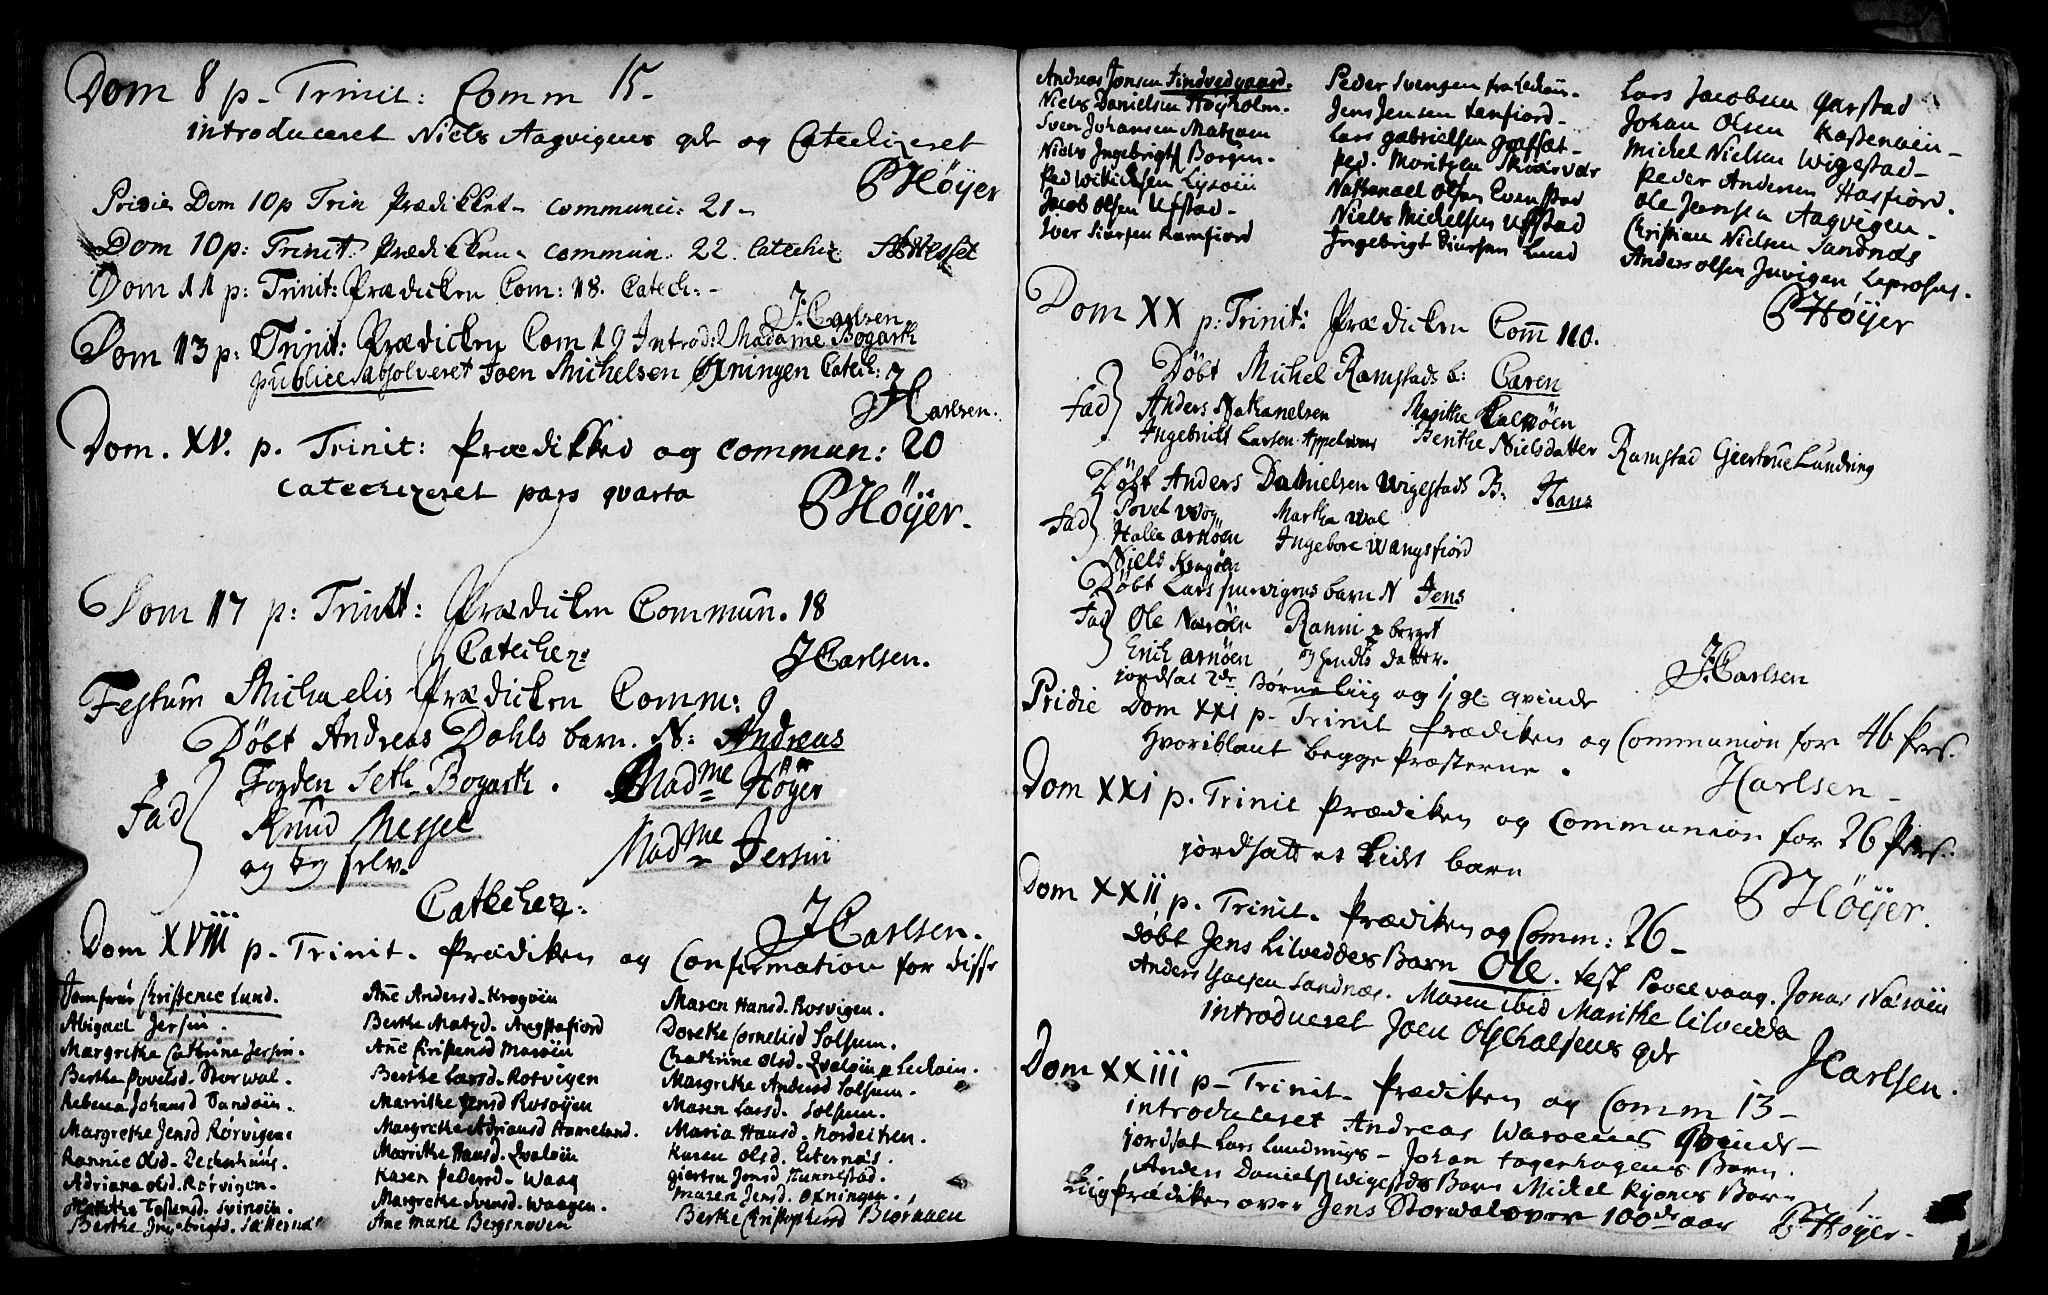 Dom 8 p. Trinit: Comm 15.
introduceret Niels Aagvigens qde og Catechizeret
PHöÿer
Pridie Dom 10 p Trin Prædikket communic: 21
Dom 10 p: Trinit Prædikken commun. 22. Catechiz
Dom 11 p: Trinit: Prædicken Com: 18. Catech:
J:Carlsen
Dom 13 p: Trinit: Prædicken Com 19 Introd: Madame Bogarth
publice absolveret Joen Michelsen Catech:
JCarlsen.
Dom. XV. p. Trinit: Prædikked og commun: 20
catechizeret pars qvarta
PHöÿer.
Dom 17 p: Trinit: Prædicken Commun. 18
Catechez:
JCarlsen.
Festum Michaelis Prædicken Comm: 9
Döbt Andreas Dahls barn. N: Andreas
Fad Seth Bogarth. Madme Höÿer
Knud Messel Madme Jersin
og ieg selv.
Catechez:
JCarlsen.
Dom XVIII p. Trinit. Prædiken og Confirmation for disse
Jomfrue Christence Lund.
Abigael Jersin.
Margrethe Cathrine Jersin.
Berthe Povelsd. Storwal.
Rebecca Johansd Sandöin.
Margrethe Jensd Rörvigen
Rannie Olsd.
Adriana Olsd. Rörvigen.
Tostensd. Svinöin.
Berthe Ingebrigtd.
Ane Andersd. Krogöin
Berthe Matzd. Angstafiord
Ane Cristensd Maröin
Berthe Larsd. Rotvigen
Marrithe Jensd Rosöyen
Margrethe Adriansd Hameland.
Marrithe Hansd. Qvaløin
Karen Pedersd. Waag
Margrethe Svensd. Waagen.
Ane Marie Bergsnoven
Maren Hansd. Rosvigen.
Dorethe Cornelisd Solsem.
Chatrine Olsd. Qvaløin p Lechøin.
Margrethe Andersd Solsem.
Maren Larsd. Solsem.
Maria Hansd. Nordeitren.
Karen Olsd. Eiternæs.
Giertru Jonsd Hunnestad.
Maren Jensd. Oxningen.
Berthe Christophersd Biörnöen
Andreas Jonsen Findvedgaard.
Niels Danielsen Höyholm.
Sven Johansen Matzom
Niels Ingebrigts Borgen.
Ped Willumsen Lysöin
Jacob Olsen Ufstad.
Iver Siursen Ramfiord
Peder Svensen fra Lechøin.
Jens Jensen Lenfiord.
Lars Gabrielsen
Ped. Moritzen Skudervær
Nathanael Olsen Evenstad
Niels Michelsen Ufstad
Ingebrigt Siursen Lund
Lars Jacobsen Garstad
Johan Olsen Kastenöin
Michel Nielsen Wigestad
Peder Andersen Hasfiord.
Ole Jensen Aagvigen.
Christian Nielsen Sandnæs
Anders Olsen Juvigen Leprosus.
PHöÿer
Dom XX p: Trinit: Prædicken Com 110.
Döbt Michel Ramstads b: Caren
Fad Anders Nathanelsen Marithe Kalnöen
Ingebricht Larsen Appelvær Berithe Nielsdatter Ramstad Giertrue Lundring
Döbt Anders Danielsen Wigestads B: Hans
Fad Povel Wog Martha Wal
Halle Arnöen Ingebore Wangsfiord
Niels Krogöen
Döbt Lars Juvigens barn N Jens
Fad Ole Naröen Ranni p berget
Erich Arnöen og hendis datter.
jordsat 2de Börne Liig og 1 gl. qvinde
J:Carlsen
Pridie Dom XXI p. Trinit Prædiken og Communion for 46 Pers.
hvoriblant begge Præsterne.
JCarlsen
Dom XXI p. Trinit Prædiken og Communion for 26 Pers.
jordsatt et lidet barn
PHöÿer.
Dom XXII p. Trinit. Prædiken og Comm: 26
döbt Jens Lilveddes Barn Ole. test Povel Vaag. Jonas Naröin
Anders Joesen Sandnæs. Maren ibid Marithe Lilvedda
introduceret Joen Olschalsens qde
JCarlsen.
Dom XXIII p. Trinit. Prædiken og Comm 13
introduceret Andreas Waröens Qvinde
jordsat Lars Lundrings Johan Fagerhagens Barn.
Anders Daniels Wigestds Barn Michel Ryönes Barn
Liigprædiken over Jens Storwal over 100de aar PHöÿer.